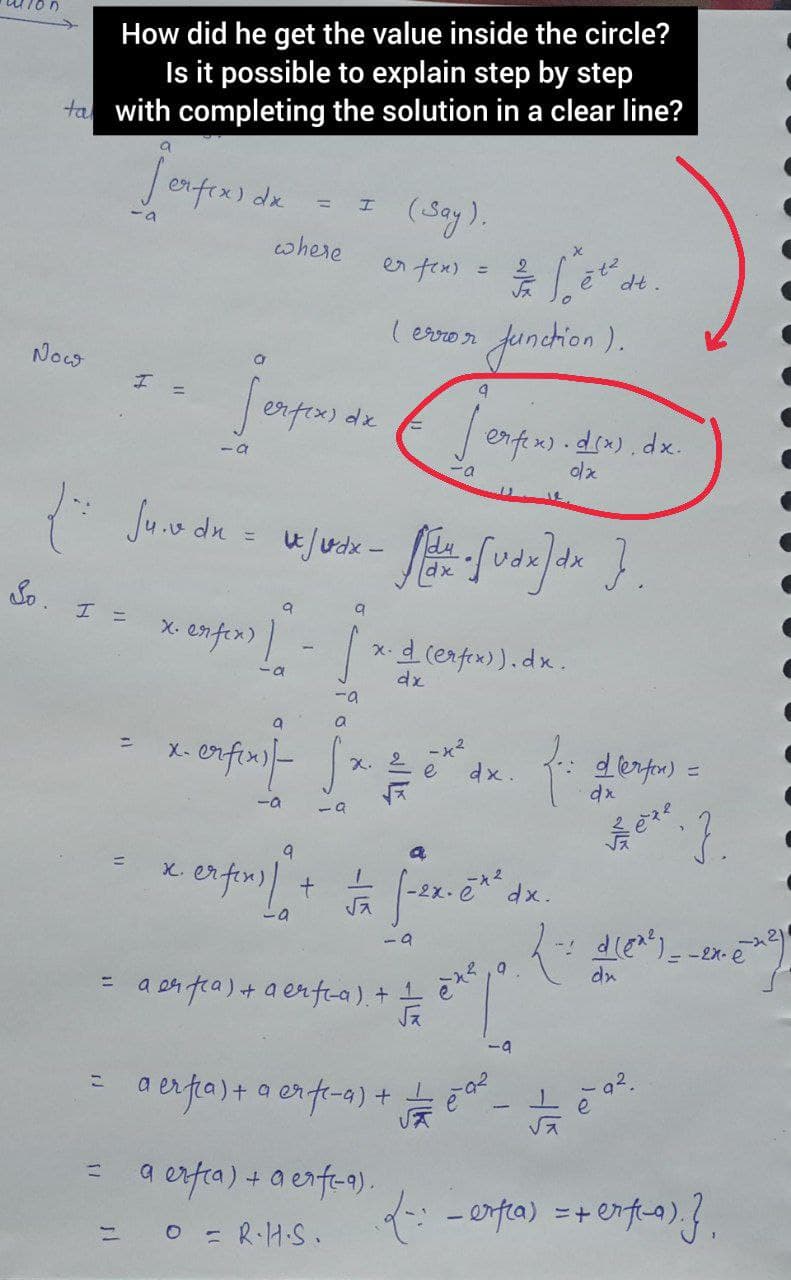 How did he get the value inside the circle?
Is it possible to explain step by step
with completing the solution in a clear line?
∫_{-a}^{a} erf(x) dx = I (say).
where erf(x) = 2/√π ∫_0^x e^{-t²} dt.
(error function).
Now I = ∫_{-a}^{a} erf(x) dx = ∫_{-a}^{a} erf(x) · d(x)/dx . dx.
{∵ ∫u.v dx = u∫vdx - ∫[du/dx · ∫vdx]dx }.
So. I = x. erf(x) |_{-a}^{a} - ∫_{-a}^{a} x. d/dx (erf(x)). dx.
= x. erf(x)|_{-a}^{a} - ∫_{-a}^{a} x. 2/√π e^{-x²} dx. {∵ d/dx (erf(x)) = 2/√π e^{-x²}. }.
= x. erf(x)|_{-a}^{a} + 1/√π ∫_{-a}^{a} -2x. e^{-x²} dx.
{∵ d/dx (e^{-x²}) = -2x. e^{-x²}}
= a erf(a) + a erf(-a). + 1/√π e^{-x²} |_{-a}^{a}.
= a erf(a) + a erf(-a) + 1/√π e^{-a²} - 1/√π e^{-a²}.
= a erf(a) + a erf(-a).
= 0 = R.H.S. {∵ - erf(a) = + erf(-a).}.